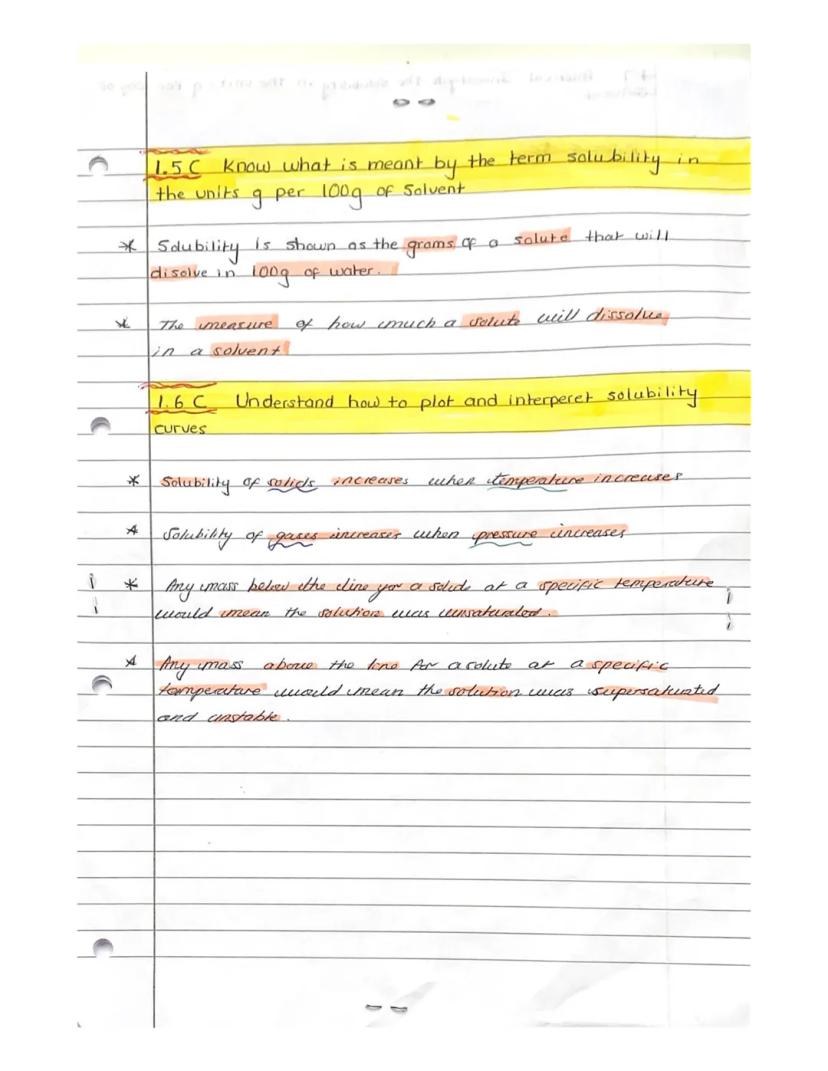 1.5 C Know what is meant by the term solubility in
the units g per 100g of Solvent
* Solubility is shown as the grams of a solute that will
disolve in 100g of water.
* The measure of how much a solute will dissolve
in a solvent
1.6 C Understand how to plot and interperet solubility
curves
* Solubility of solids increases when temperature increases
* Solubility of gases increases when pressure increases
* Any mass below the line for a solute at a specific temperature
would mean the solution was unsaturated.
* Any mass above the line for a solute at a specific
temperature would mean the solution was supersaturated
and unstable.